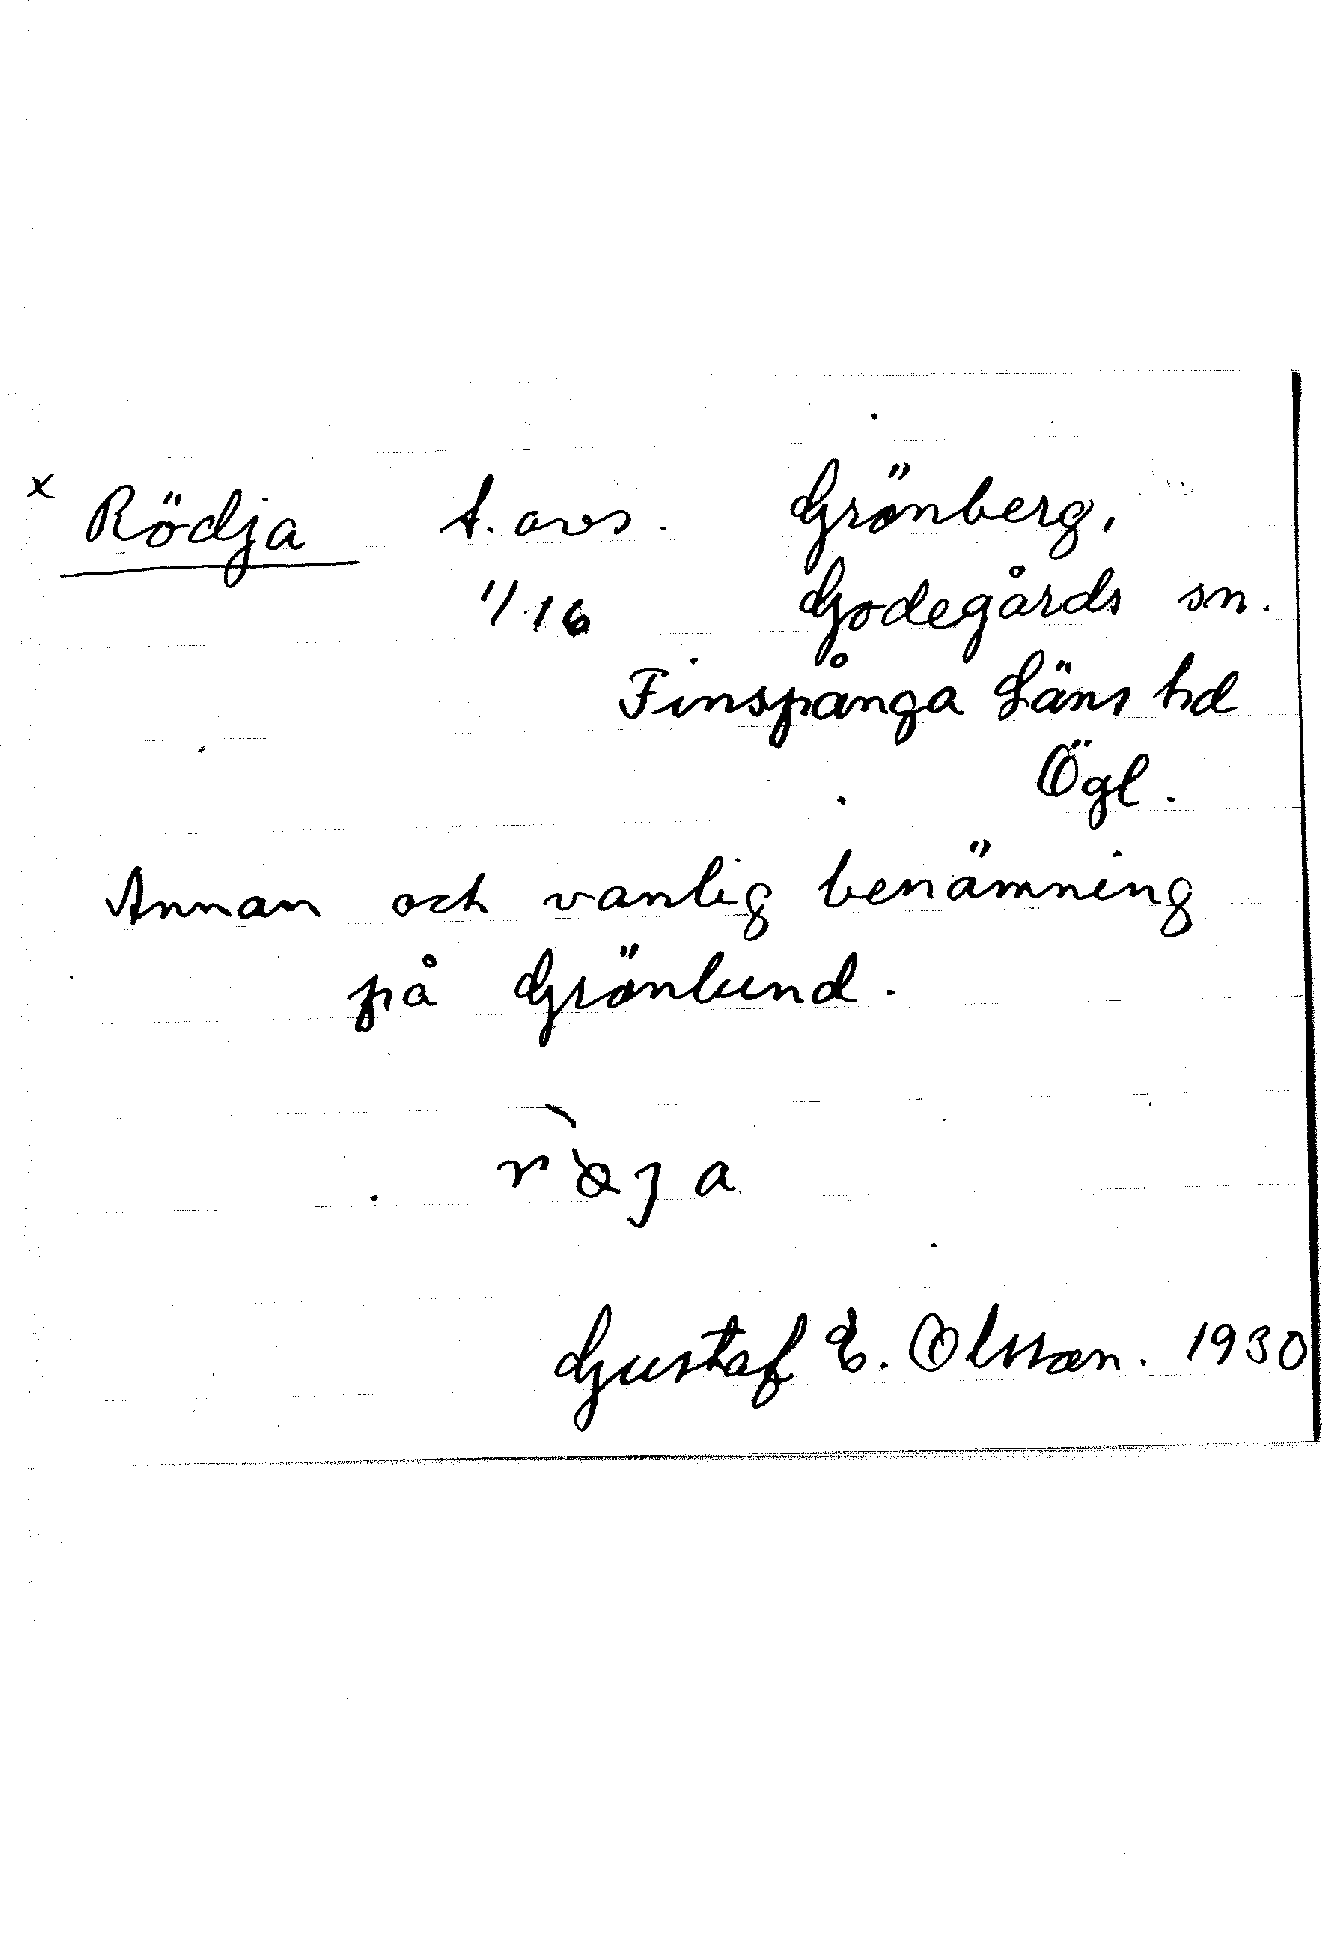 x Rödja t. avs. Grönberg,
1/16 Godegårds sn.
Finspånga Läns hd
Ögl.
Annan och vanlig benämning
på Grönlund.
Gustaf E. Olsson. 1930